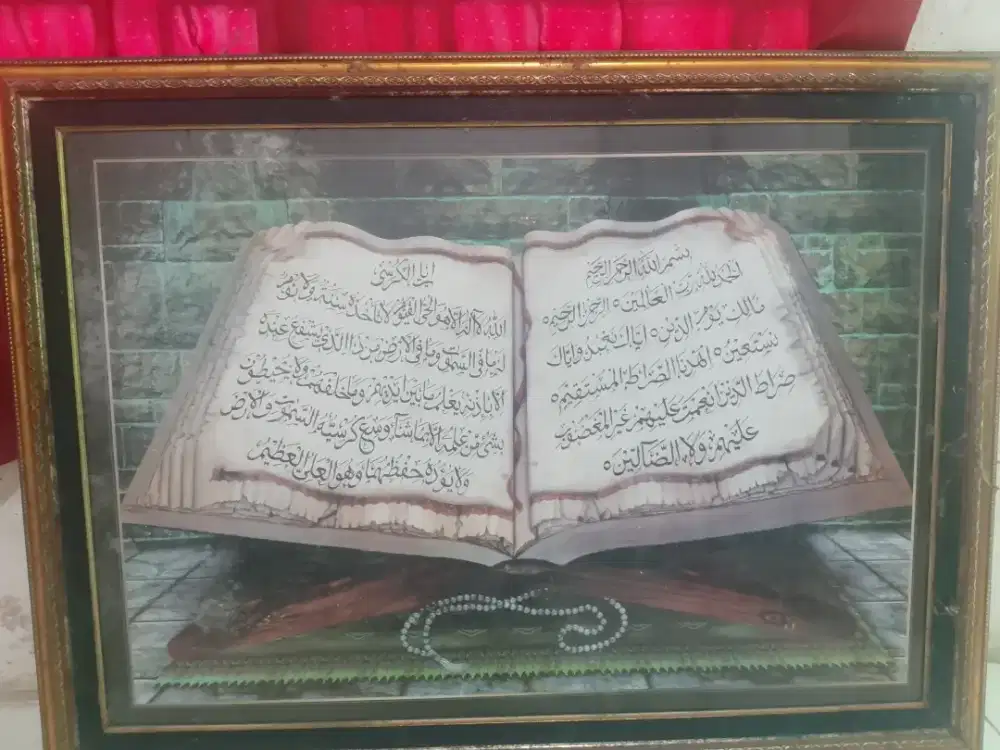 بسم الله الرحمن الرحيم
الحمد لله رب العالمين ٥ الرحمن الرحيم ٥
مالك يوم الدين ٥ اياك نعبد واياك
نستعين ٥ اهدنا الصراط المستقيم ٥
صراط الذين انعمت عليهم غير المغضوب
عليهم ٥ ولا الضالين ٥
اية الكرسي
الله لا اله الا هو الحي القيوم لا تاخذه سنة ولا نوم
له ما في السموت وما في الارض من ذا الذي يشفع عنده
الا باذنه يعلم ما بين ايديهم وما خلفهم ولا يحيطون
بشئ من علمه الا بما شآء وسع كرسيه السموت والارض
ولا يوده حفظهما وهو العلي العظيم